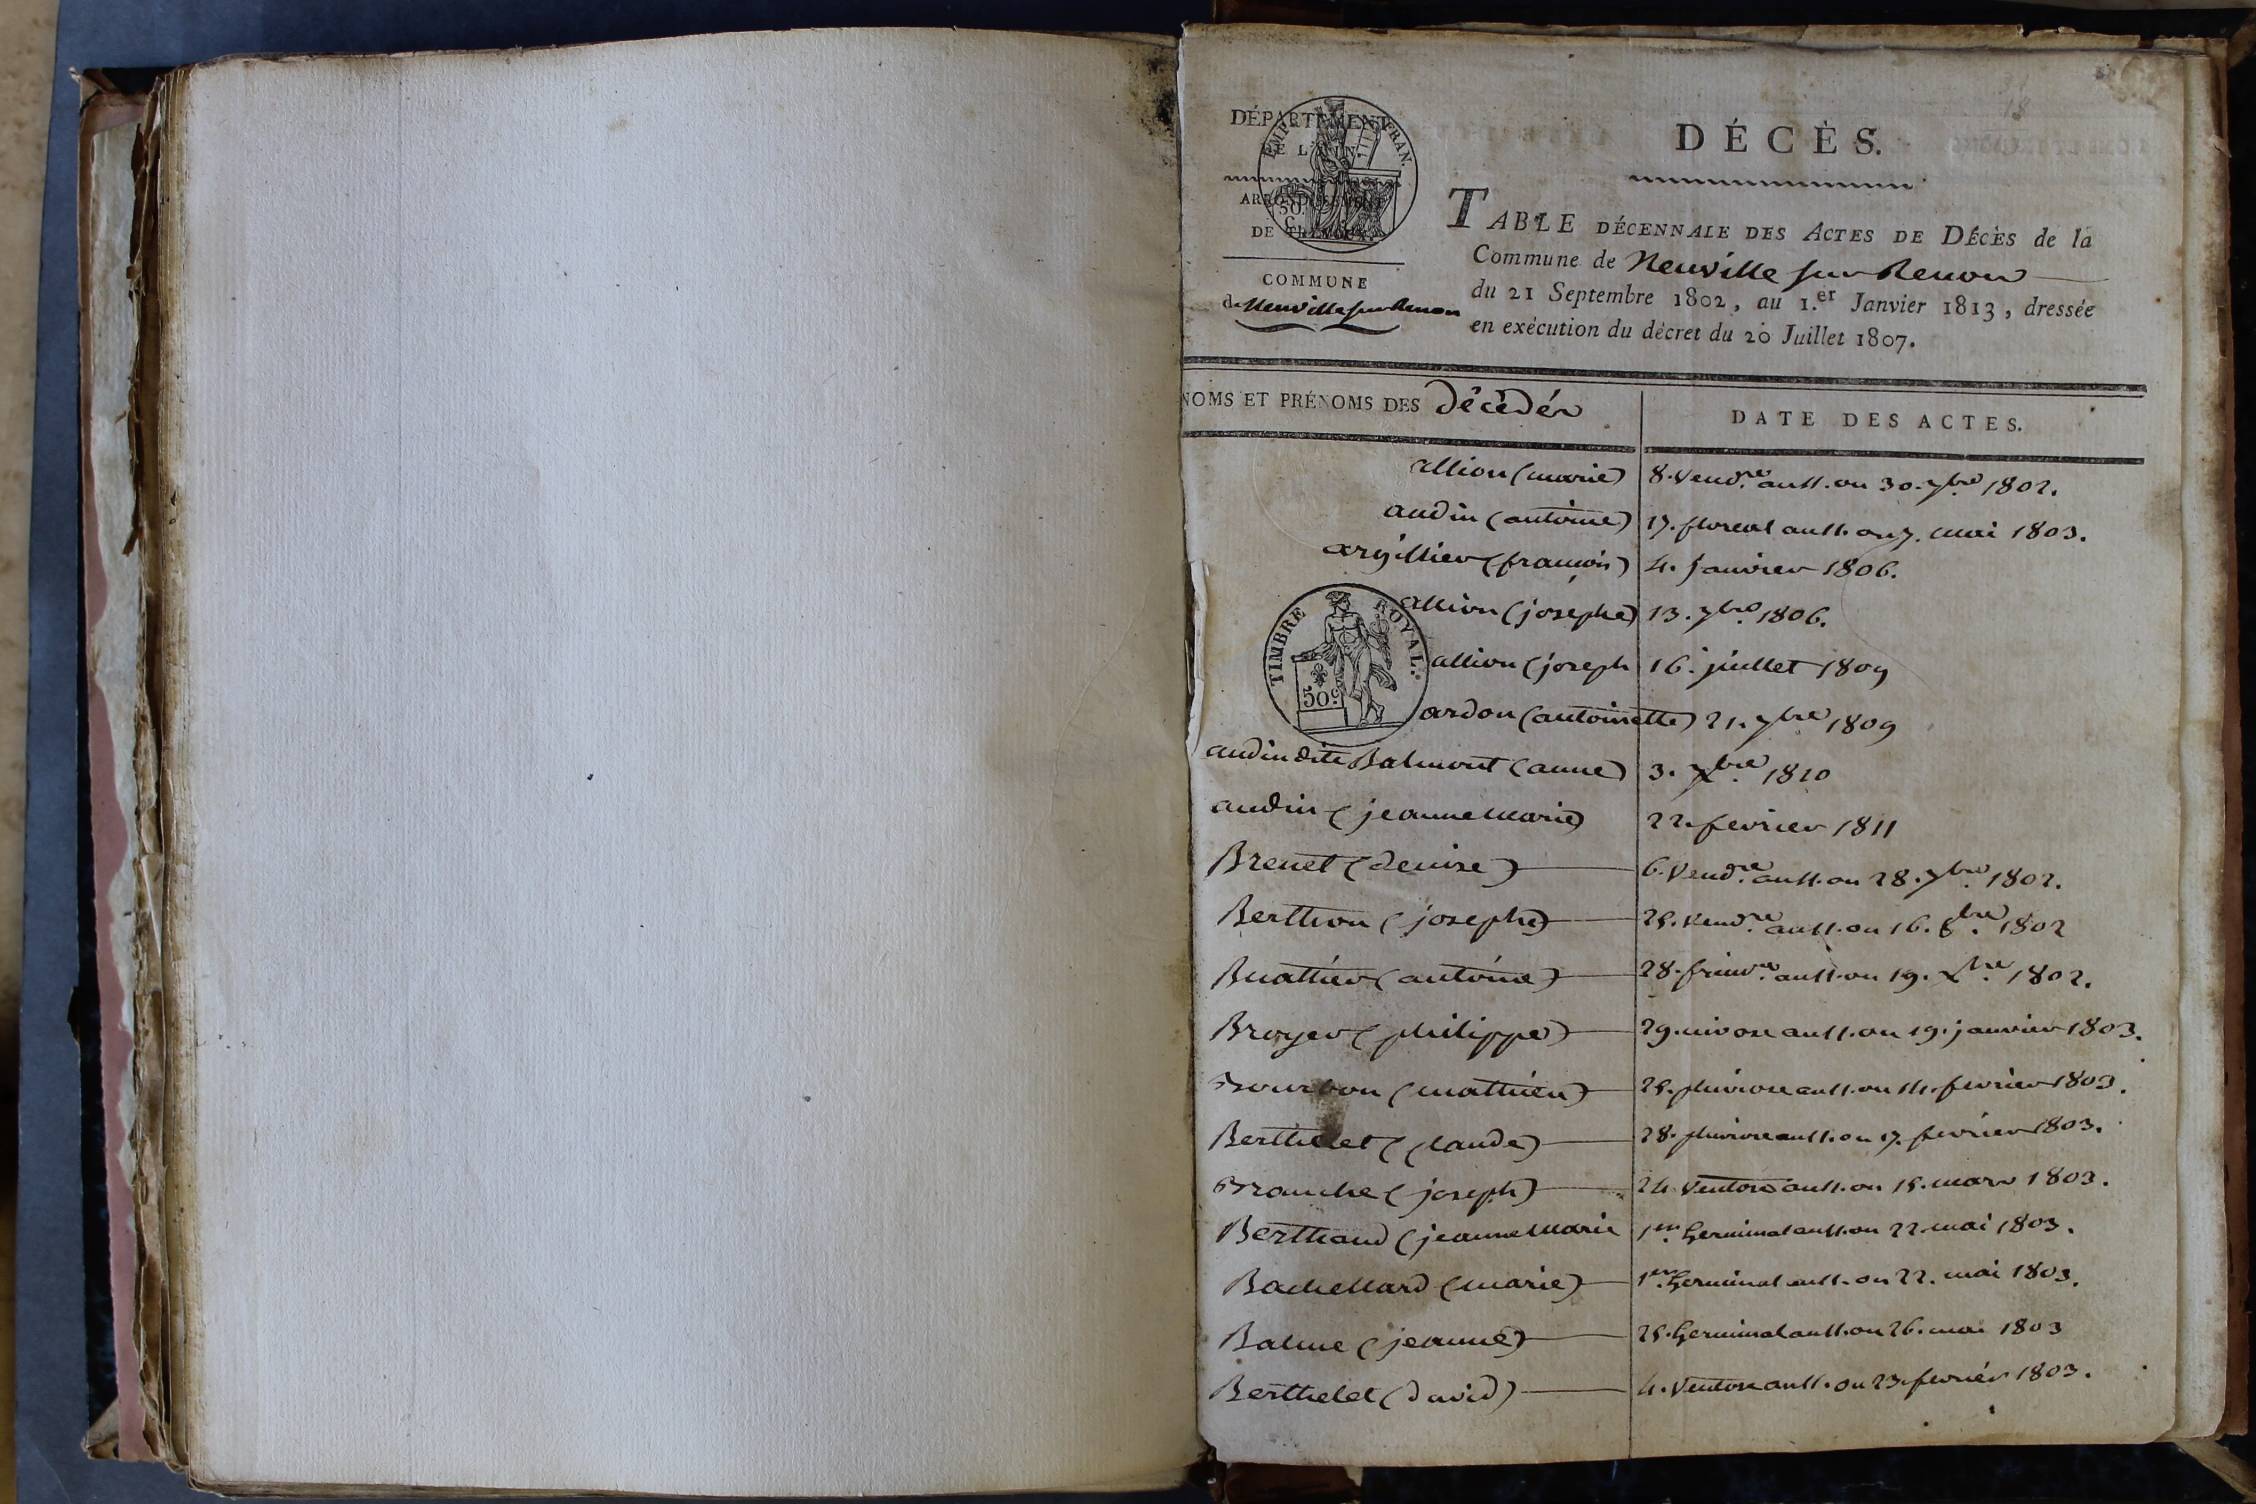 DÉPARTEMENT
DE L'AIN.
ARRONDISSEMENT
DE TRÉVOUX.
EMP. FRAN.
50.
C.
COMMUNE
de Neuville sur Renon
DÉCÈS.
TABLE DÉCENNALE DES ACTES DE DÉCÈS de la
Commune de Neuville sur Renon
du 21 Septembre 1802, au 1.er Janvier 1813, dressée
en exécution du décret du 20 Juillet 1807.
NOMS ET PRÉNOMS DES décédés
DATE DES ACTES.
allion (marie) 8. Vend.re an 11. ou 30. 7bre 1802.
audin (antoine) 17. floreal an 11. ou 7. mai 1803.
argillier (françois) 4. janvier 1806.
allion (josephe) 13. 7bre 1806.
TIMBRE ROYAL.
50.c
allion (joseph 16. juillet 1809
ardon (antoinette) 21. 7bre 1809
audin dite Balmont (anne) 3. Xbre 1810
audin (jeanne Marie) 22. fevrier 1811
Brenet (denise) 6. Vend.re an 11. ou 28. 7bre 1802.
Berthon (josephe) 25. Vend.re an 11. ou 16. 8.bre 1802
Buattier (antoine) 28. frim.re an 11. ou 19. Xbre 1802.
Broyer (philippe) 29. nivose an 11. ou 19. janvier 1803.
Bourbon (mathieu) 25. pluviose an 11. ou 14. fevrier 1803.
Berthelet (Claude) 28. pluviose an 11. ou 17. fevrier 1803.
Branche (joseph) 24 Ventose an 11. ou 15. mars 1803.
Berthaud (jeanne Marie 1er Germinal an 11. ou 22 mai 1803.
Bachellard (marie) 1er Germinal an 11. ou 22. mai 1803.
Balme (jeanne) 25. Germinal an 11. ou 26. mai 1803
Berthelet (david) 4. Ventose an 11. ou 23. fevrier 1803.